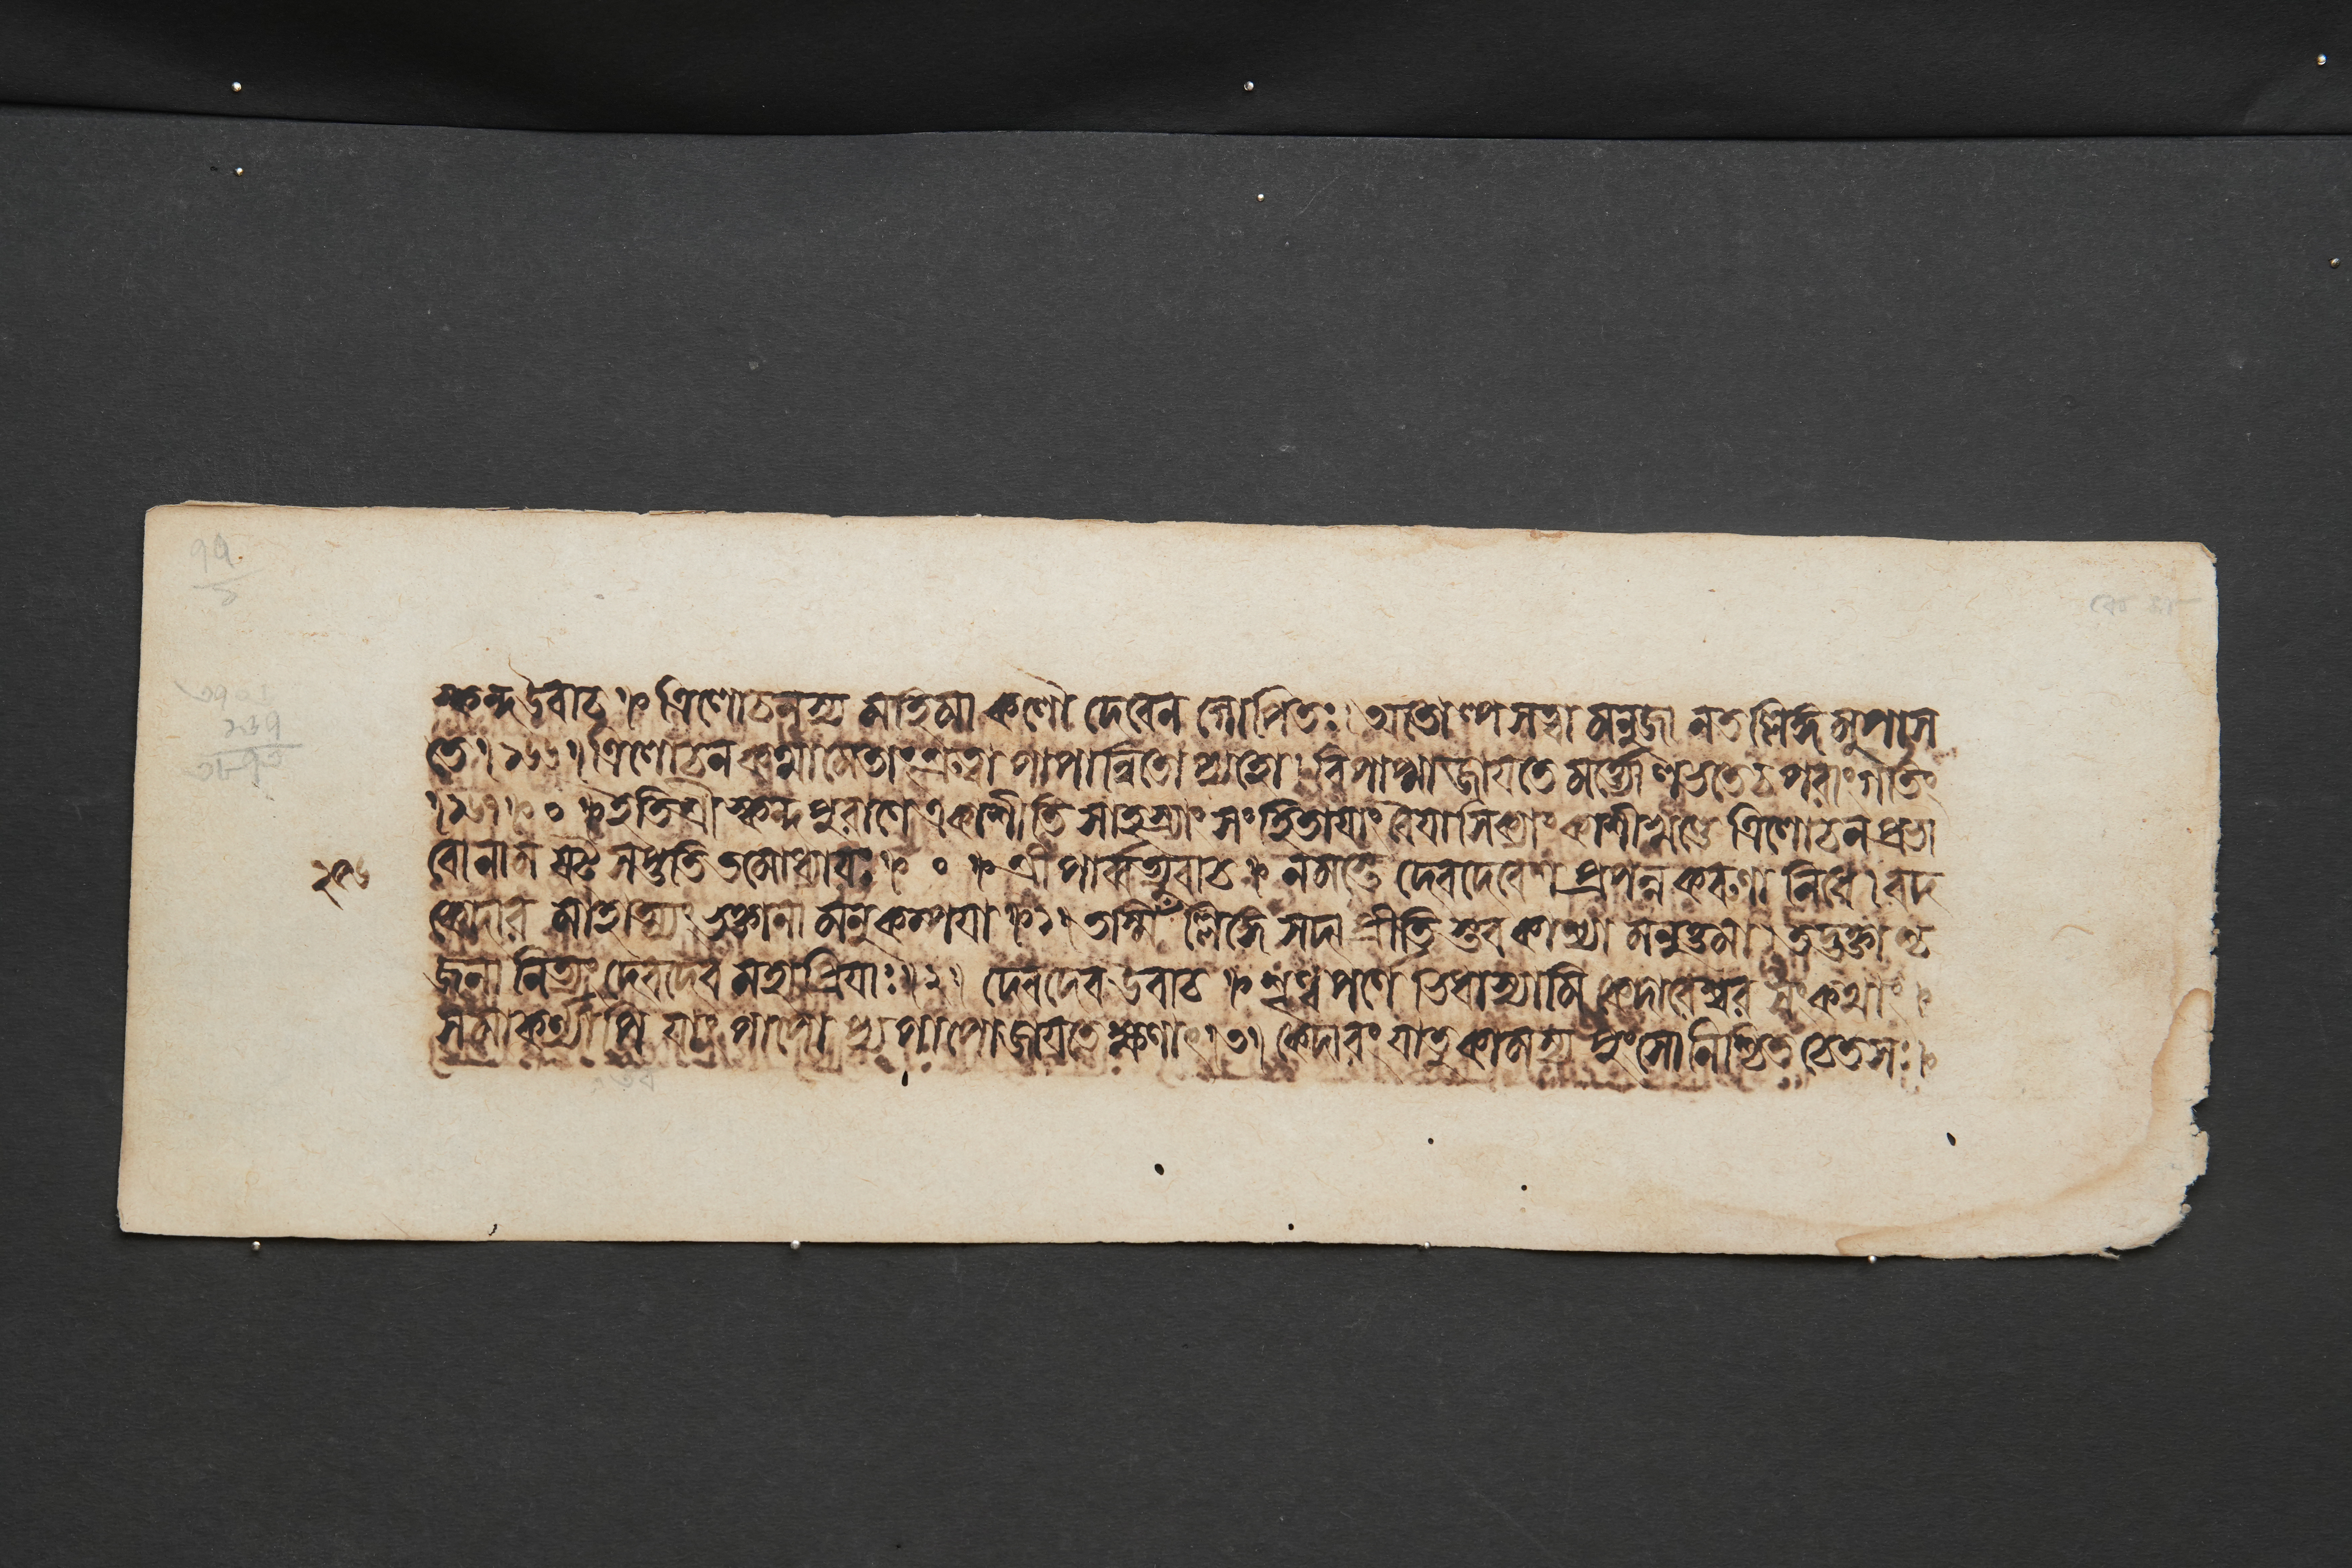 স্কন্দ উবাচ ॥ ত্রিলোচনস্য মহিমা কলৌ দেবেন গোপিতঃ। অতোল্পসত্বা মনুজা ন তল্লিঙ্গমুপাস
তে।১৬৬। ত্রিলোচনকথামেতাং শ্রুত্বা পাপান্বিতোপ্যহো। বিপাপ্মা জাযতে মর্ত্যো লভতে চ পরাং গতিং
।১৬৭॥ ০ ॥ ইতি শ্রীস্কন্দপুরাণে একাশীতিসাহস্র্যাং সংহিতাযাং বৈযাসিক্যাং কাশীখণ্ডে ত্রিলোচনপ্রভা
বো নাম ষট্সপ্ততিতমোধ্যাযঃ ॥ ০ ॥ শ্রীপার্ব্বত্যুবাচ ॥ নমস্তে দেবদেবেশ প্রপন্নকরুণানিধে। বদ
কেদারমাহাত্ম্যং ভক্তানামনুকম্পযা ॥১॥ তস্মিঁল্লিঙ্গে সদা প্রীতিস্তব কাশ্যামনুত্তমা। তদ্ভক্তাশ্চ
জনা নিত্যং দেবদেব মহাপ্রিযাঃ।২। দেবদেব উবাচ ॥ শৃণ্বপর্ণেভিধাস্যামি কেদারেশ্বরসংকথাং।
সমাকর্ণ্যাপি যাং পাপোপ্যপাপো জাযতে ক্ষণাৎ।৩। কেদারং যাতুকামস্য পুংসো নিশ্চিতচেতসঃ।